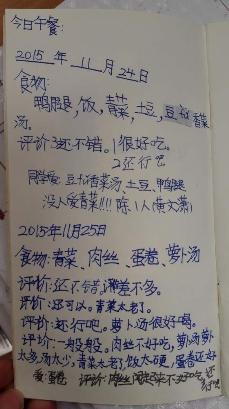 今日午餐:
2015 年 11 月 24 日
食物:
鸭腿,饭,青菜,土豆,豆付香菜
汤。
评价3还不错。1很好吃。
2还行吧
同学爱:豆付香菜汤、土豆、鸭腿
没人爱青菜!!!! 除1人(黄文潇)
2015年11月25日
食物:青菜、肉丝、蛋卷、萝卜汤
评价:还不错,差不多。
评价:还可以。青菜太老了。
评价:还行吧。萝卜汤很好喝。
评价:一般般。肉丝不好吃,萝卜汤萝卜
太多汤太少,青菜太老了,饭太硬,蛋卷还好
爱:蛋卷 评价:肉丝 不好吃 还
行吧